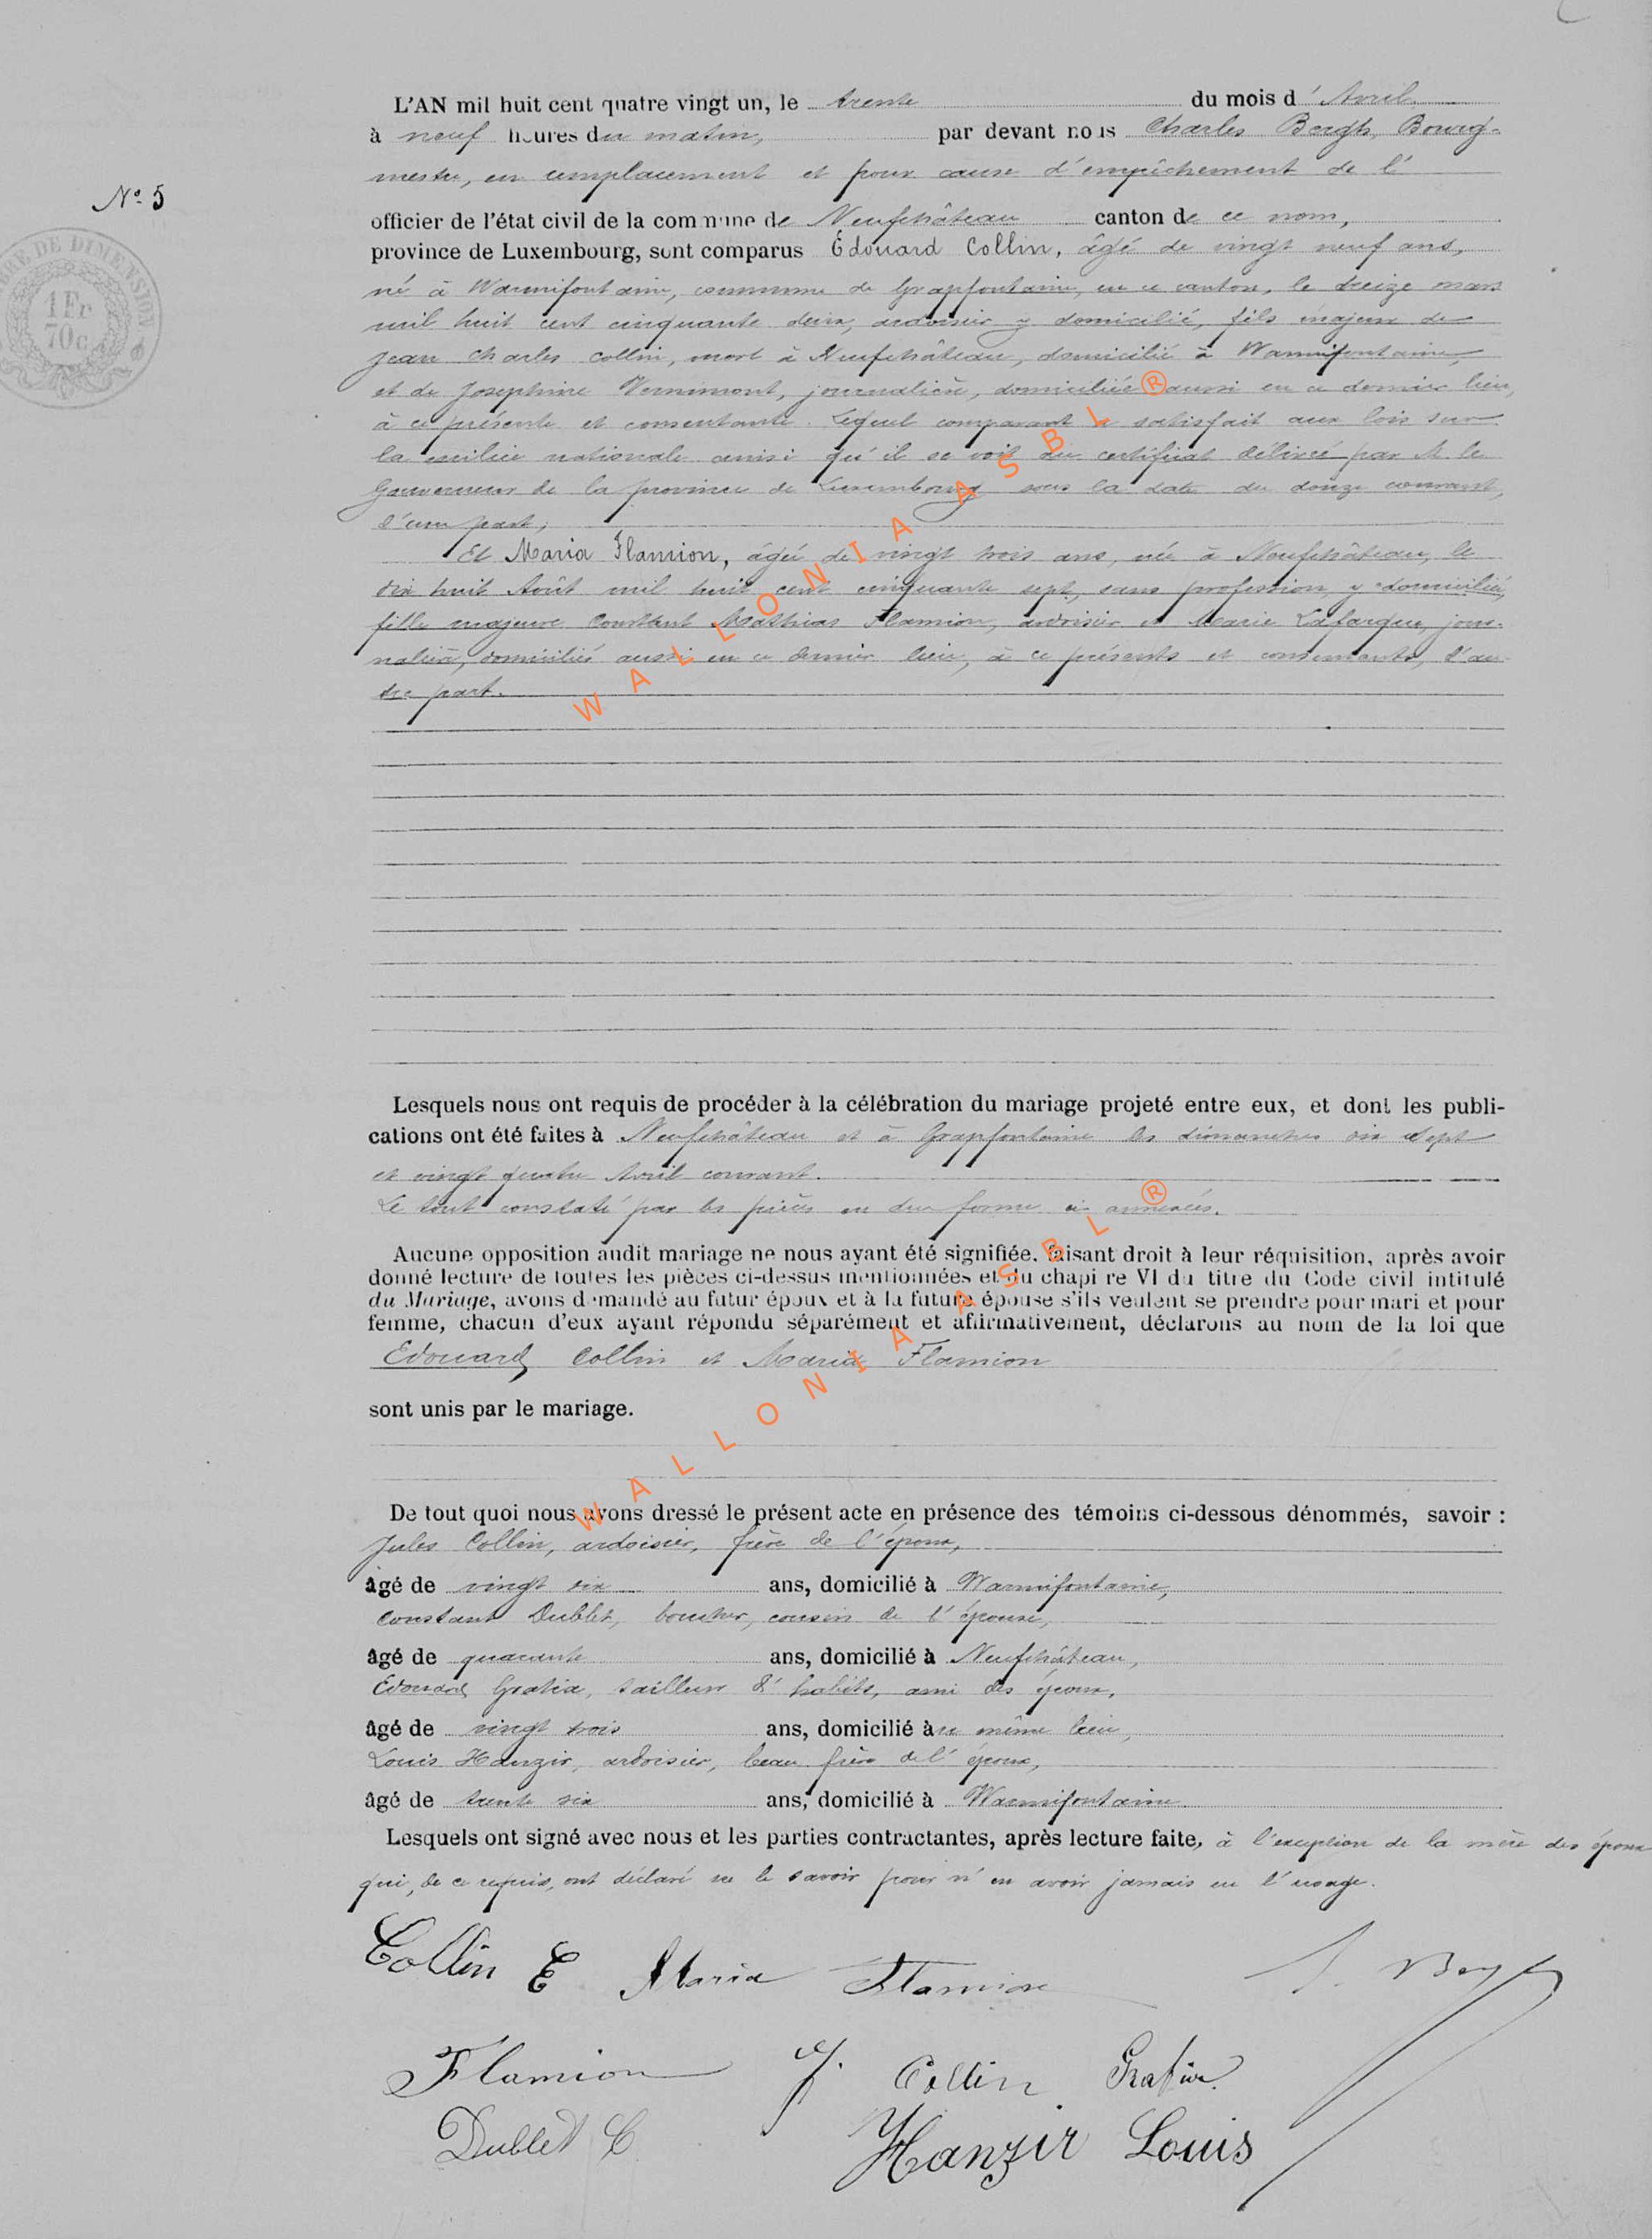 L'AN mil huit cent quatre vingt un, le trente du mois d'Avril
à neuf heures du matin, par devant nous Charles Bergh, Bourg-
mestre, en remplacement et pour cause d'empêchement de l'
N° 5
officier de l'état civil de la commune de Neufchâteau canton de ce nom,
province de Luxembourg, sont comparus Édouard Collin, âgé de vingt neuf ans,
TIMBRE DE DIMENSION
1 Fr
70 c
né à Warmifontaine, commune de Grapfontaine, en ce canton, le treize mars
mil huit cent cinquante deux, ardoisier y domicilié, fils majeur de
Jean Charles Collin, mort à Neufchâteau, domicilié à Warmifontaine,
et de Josephine Vernimont, journalière, domiciliée aussi en ce dernier lieu,
à ce présente et consentante. Lequel comparant a satisfait aux lois sur
la milice nationale ainsi qu'il se voit au certificat délivré par M. le
Gouverneur de la province de Luxembourg sous la date du douze courant,
d'une part;
Et Maria Flamion, âgée de vingt trois ans, née à Neufchâteau, le
dix huit Août mil huit cent cinquante sept, sans profession, y domiciliée,
fille majeure Constant Mathias Flamion, ardoisier et Marie Lafargue, jour-
nalière, domiciliés aussi en ce dernier lieu, à ce présents et consentants, d'au-
tre part.
WALLONIA ASBL ®
Lesquels nous ont requis de procéder à la célébration du mariage projeté entre eux, et dont les publi-
cations ont été faites à Neufchâteau et à Grapfontaine les dimanches dix sept
et vingt quatre Avril courant.
Le tout constaté par les pièces en due forme ci annexées.
Aucune opposition audit mariage ne nous ayant été signifiée, faisant droit à leur réquisition, après avoir
donné lecture de toutes les pièces ci-dessus mentionnées et du chapitre VI du titre du Code civil intitulé
du Mariage, avons demandé au futur époux et à la future épouse s'ils veulent se prendre pour mari et pour
femme, chacun d'eux ayant répondu séparément et affirmativement, déclarons au nom de la loi que
Edouard Collin et Maria Flamion
sont unis par le mariage.
WALLONIA ASBL ®
De tout quoi nous avons dressé le présent acte en présence des témoins ci-dessous dénommés, savoir :
Jules Collin, ardoisier, frère de l'époux,
âgé de vingt six ans, domicilié à Warmifontaine,
Constant Dublet, boucher, cousin de l'épouse,
âgé de quarante ans, domicilié à Neufchâteau,
Edouard Gratia, tailleur d'habits, ami des époux,
âgé de vingt trois ans, domicilié à ce même lieu,
Louis Hanzir, ardoisier, beau frère de l'époux,
âgé de trente six ans, domicilié à Warmifontaine
Lesquels ont signé avec nous et les parties contractantes, après lecture faite, à l'exception de la mère des époux
qui, de ce requis, ont déclaré ne le savoir pour n'en avoir jamais eu l'usage.
Collin E Maria Flamion
Flamion J. Collin Gratia
Dublet C Hanzir Louis